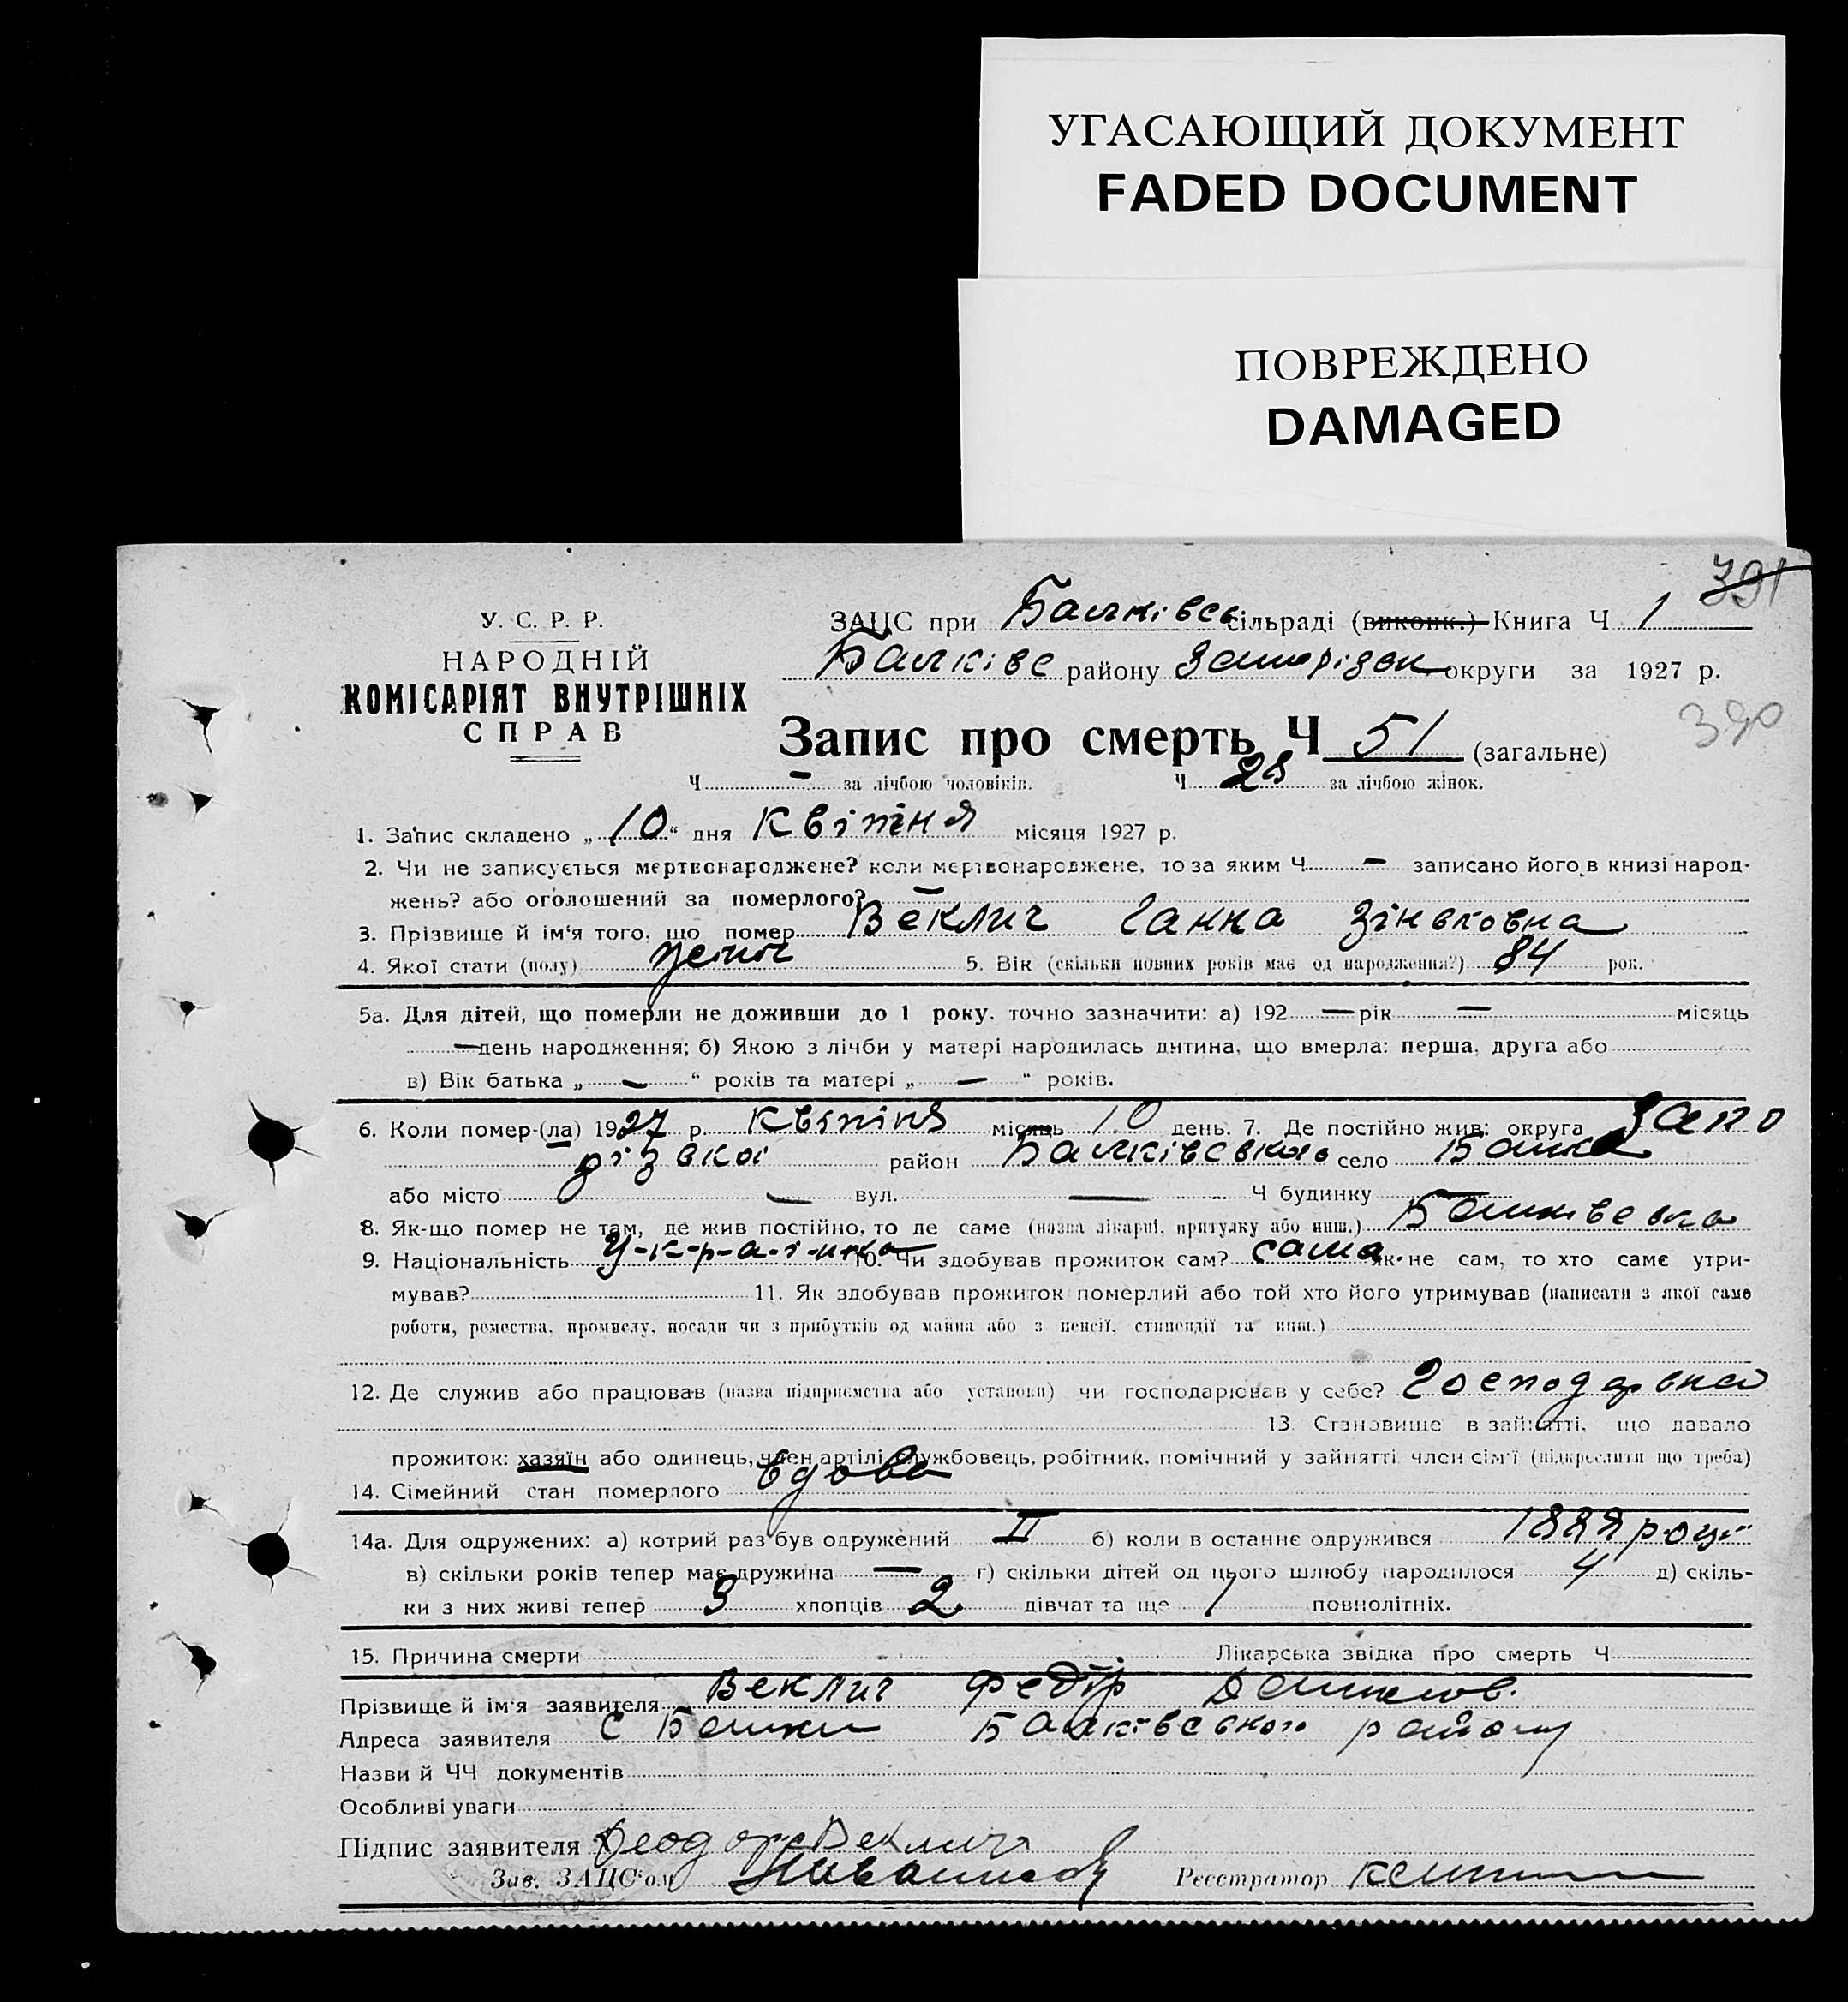 УГАСАЮЩИЙ ДОКУМЕНТ
FADED DOCUMENT
ПОВРЕЖДЕНО
DAMAGED
391
У. С. Р. Р.
НАРОДНІЙ
КОМІСАРІЯТ ВНУТРІШНІХ
СПРАВ
ЗАЦС при Балківськ сільраді (виконк.) Книга Ч 1
Балківс району Запорізьк округи за 1927 р.
390
Запис про смерть Ч 51 (загальне)
Ч — за лічбою чоловіків. Ч 28 за лічбою жінок.
1. Запис складено „10“ дня Квітня місяця 1927 р.
2. Чи не записується мертвонароджене? коли мертвонароджене, то за яким Ч — записано його в книзі народ-
жень? або оголошений за померлого? —
3. Прізвище й ім'я того, що помер Веклич Ганна Зіновковна
4. Якої стати (полу) жіноч 5. Вік (скільки повних років має од народження?) 84 рок.
5а. Для дітей, що померли не доживши до 1 року, точно зазначити: а) 192 — рік — місяць
— день народження; б) Якою з лічби у матері народилась дитина, що вмерла: перша, друга або
в) Вік батька „ — “ років та матері „ — “ років.
6. Коли помер-(ла) 1927 р. квітня місяць 10 день. 7. Де постійно жив: округа Запо
різької район Балківського село Балка
або місто — вул. — Ч будинку —
8. Як-що помер не там, де жив постійно, то де саме (назва лікарні, притулку або инш.)
9. Національність У-к-р-а-ї-нка 10. Чи здобував прожиток сам? сама як не сам, то хто саме утри-
мував? 11. Як здобував прожиток померлий або той хто його утримував (написати з якої саме
роботи, ремества, промислу, посади чи з прибутків од майна або з пенсії, стипендії та инш.)
12. Де служив або працював (назва підприємства або установи) чи господарював у себе? Господарвка
13. Становище в зайнятті, що давало
прожиток: хазяїн або одинець, член артілі службовець, робітник, помічний у зайнятті член сім'ї (підкреслити що треба)
14. Сімейний стан померлого вдова
14а. Для одружених: а) котрий раз був одружений II б) коли в останнє одружився році
в) скільки років тепер має дружина — г) скільки дітей од цього шлюбу народилося 4 д) скіль-
ки з них живі тепер 3 хлопців 2 дівчат та ще 1 повнолітніх.
15. Причина смерти Лікарська звідка про смерть Ч
Прізвище й ім'я заявителя Веклич Федір
Адреса заявителя с Балки Балківського району
Назви й ЧЧ документів
Особливі уваги
Підпис заявителя Веклич
Зав. ЗАЦС'ом Реєстратор